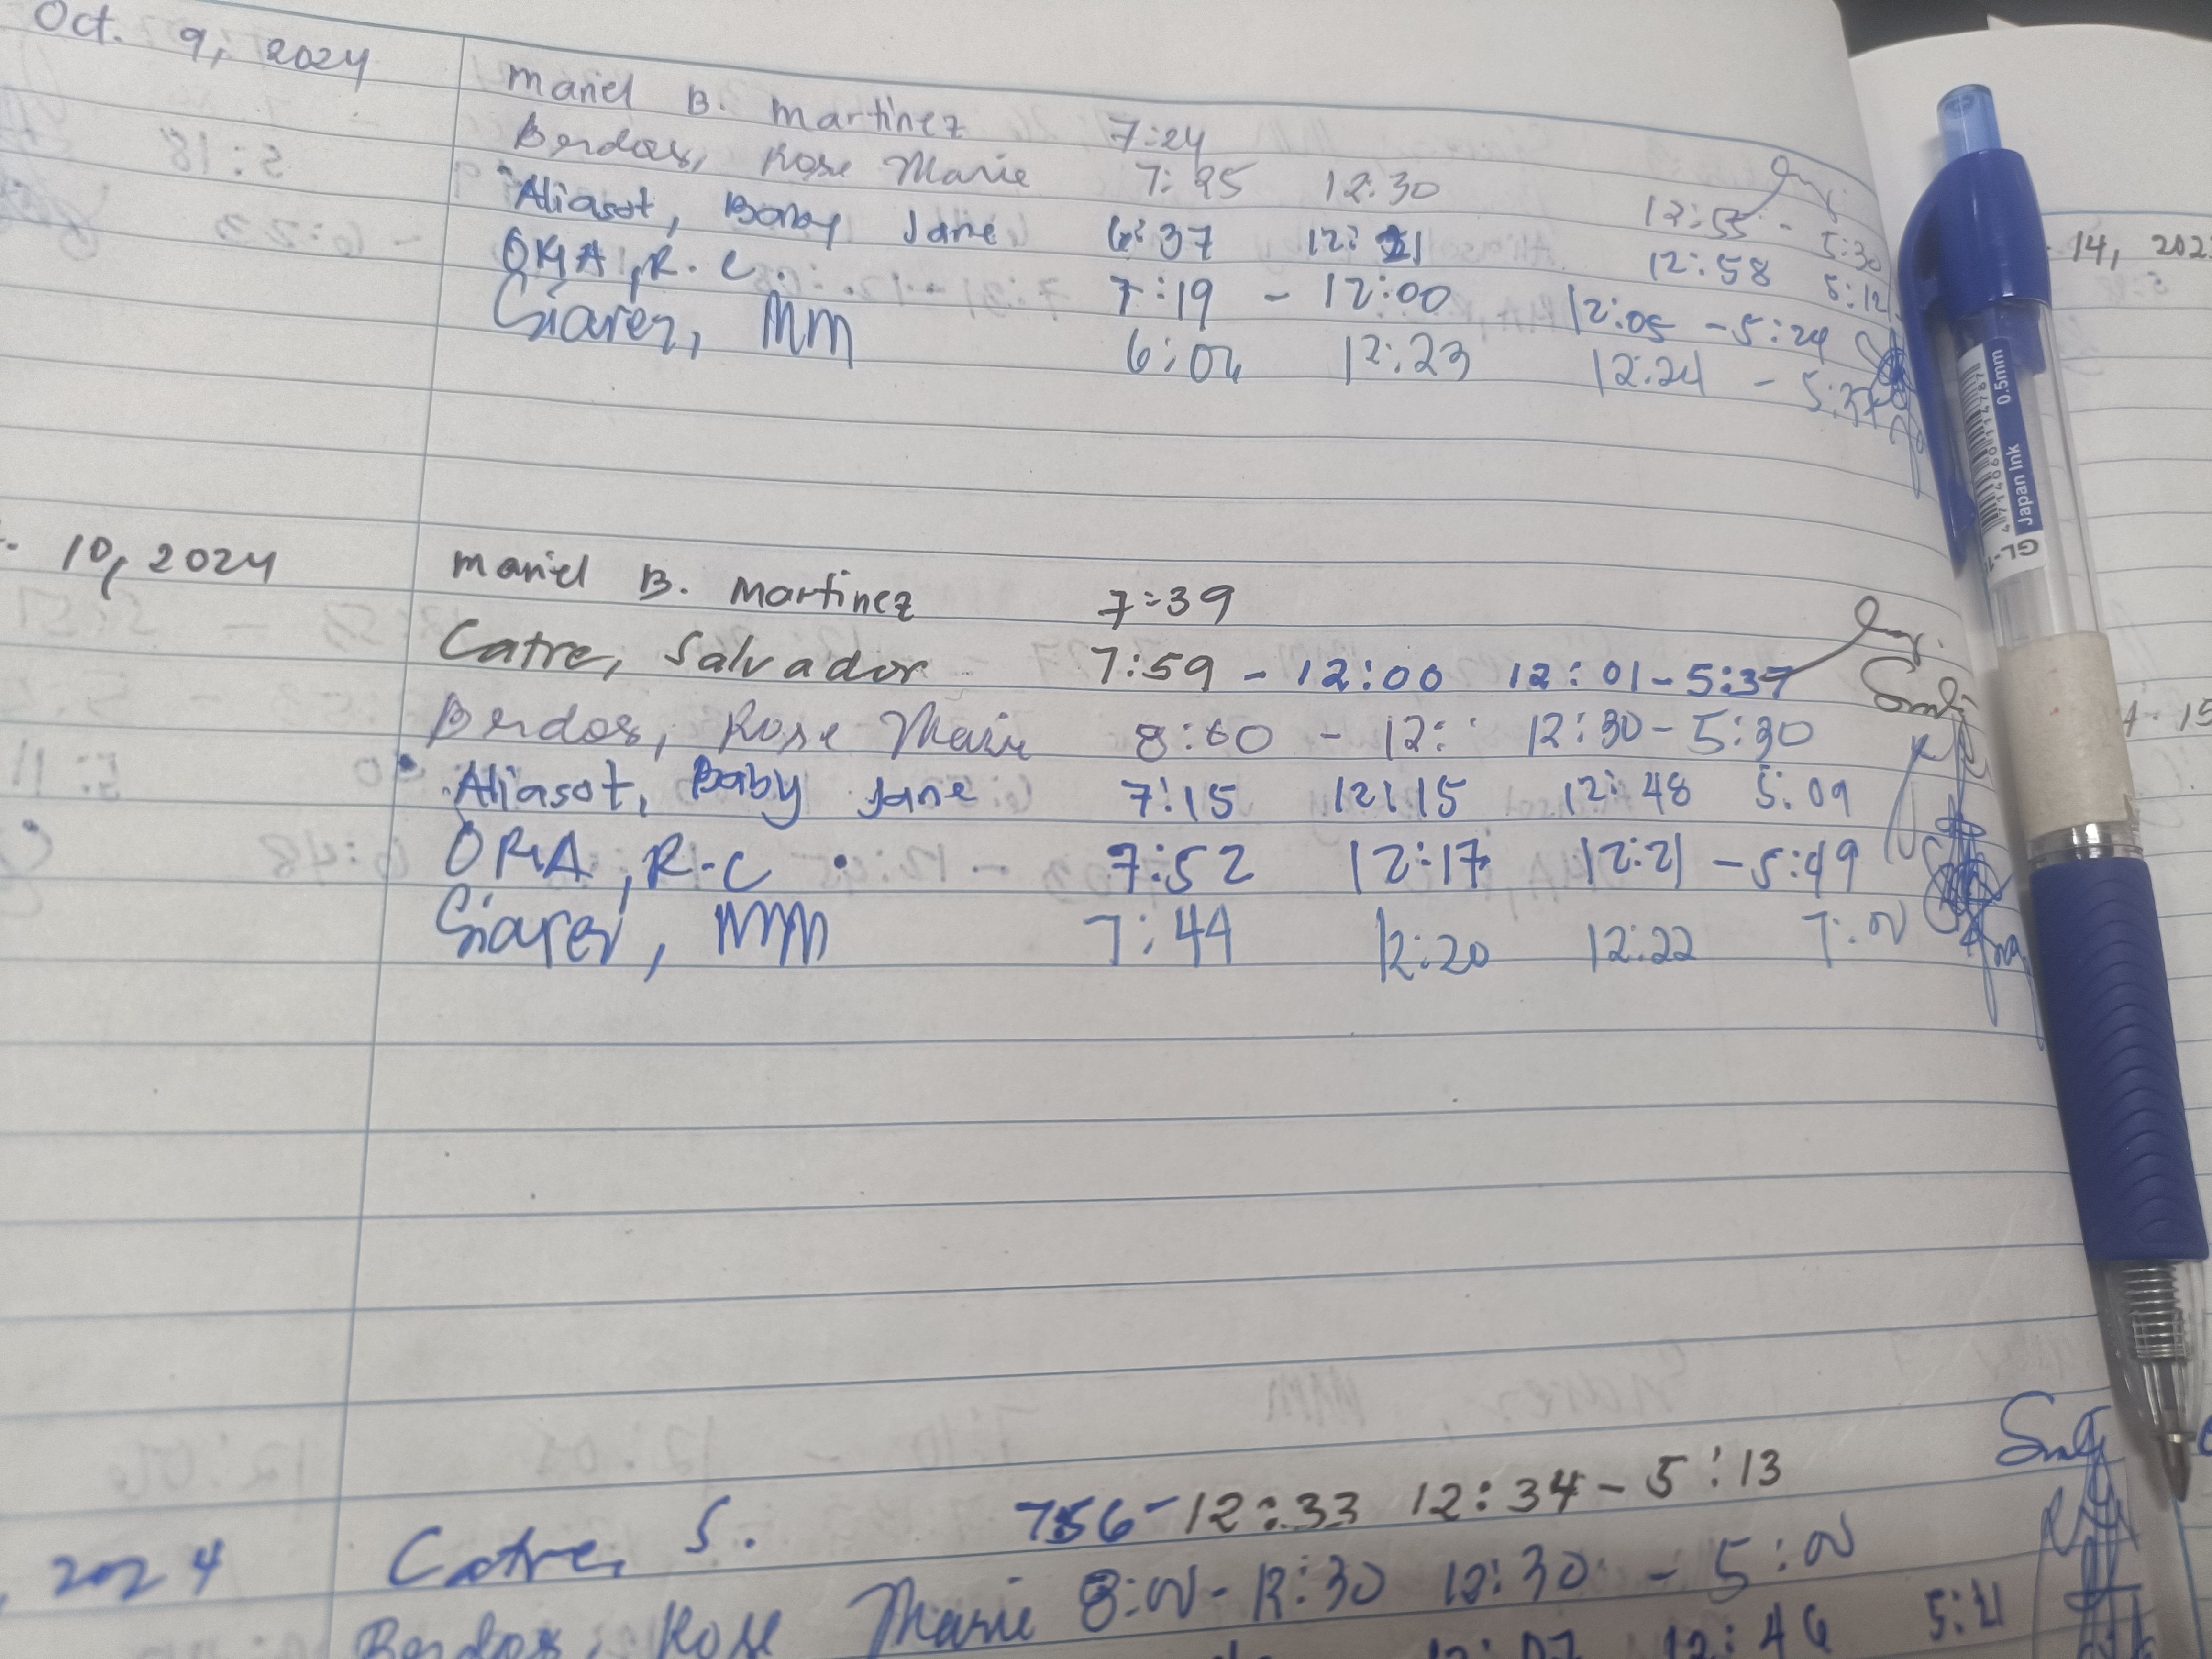 Oct. 9, 2024
Mariel B. Martinez 7:24
Berdos, Rose Marie 7:25 12:30 12:55 - 5:30
Aliasot, Baby Jane 6:37 12:21 12:58 5:12
ORIA, R.C. 7:19 - 12:00 12:05 - 5:24
Siarez, MM 6:04 12:23 12:24 -
10, 2024 Mariel B. Martinez 7:39
Catre, Salvador 7:59 - 12:00 12:01 - 5:37
Berdos, Rose Marie 8:00 - 12: 12:30 - 5:30
Aliasot, Baby Jane 7:15 12:15 12:48 5:09
ORIA, R.C 7:52 12:17 12:21 - 5:49
Siarez, MM 7:44 12:20 12:22 7:00
, 2024 Catre, S. 7:56 - 12:33 12:34 - 5:13
Berdos, Rose Marie 8:00 - 12:30 12:30 - 5:00
12:07 12:46 5:11
14, 202
15
GL-1
Japan Ink 0.5mm